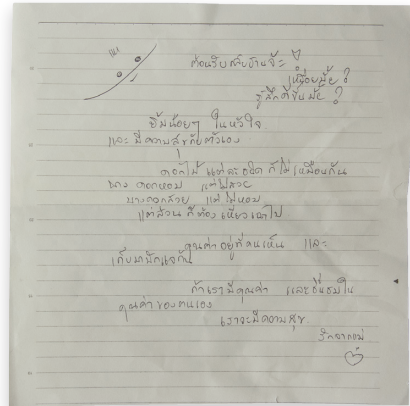 ต้อนรับกลับบ้านจ้ะ
เหนื่อยมั้ย?
รู้สึกดีขึ้นมั้ย?
ยิ้มน้อยๆ ในหัวใจ
และมีความสุขกับตัวเอง
ดอกไม้ แต่ละชนิด ก็ไม่เหมือนกัน
บางดอกหอม แต่ไม่สวย
บางดอกสวย แต่ไม่หอม
แต่ล้วน ก็ต้อง เหี่ยวเฉาไป
คุณค่า อยู่ที่คนเห็น และ
เก็บมาปักแจกัน
ถ้าเรามีคุณค่า และชื่นชมใน
คุณค่าของตนเอง
เราจะมีความสุข
รักจากแม่